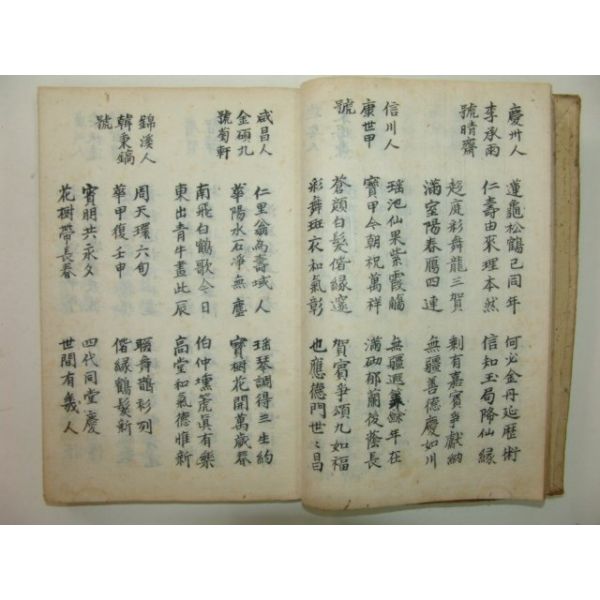 慶州人
李承雨
號晴齋
蓮龜松鶴已同年 何必金丹延歷術
仁壽由來理本然 信知玉局降仙緣
超庭彩舞龍三賀 剩有嘉賓爭獻納
滿室陽春鴈四連 無疆善德慶如川
信川人
康世甲
號
瑤池仙果紫霞觴 無疆遐餘年在
寶甲今朝祝萬祥 滿砌郁蘭後蔭長
蒼顔白髮偕緣邃 賀賓爭頌九如福
彩舞斑衣和氣彰 也應德門世〻昌
咸昌人
金碩九
號菊軒
仁里翁高壽域人 瑤琴調得三生約
華陽水石淨無塵 寶樹花開萬歲春
南飛白鶴歌今日 伯仲壎箎眞有樂
東出青牛畫此辰 高堂和氣德惟新
錦溪人
韓東鎬
號
周天環六旬 舞彩列
華甲復壬甲 偕緣鶴髮新
賓朋共永久 四代同堂慶
花樹帶長春 世間有幾人